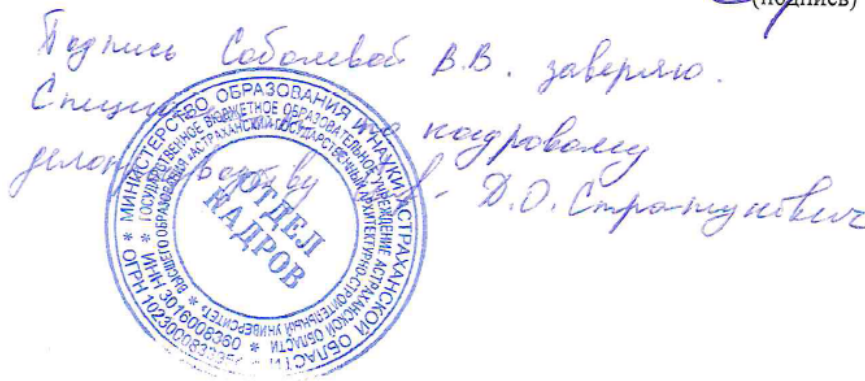 (подпись)
Подпись Соболевой В.В. заверяю.
Специалист по кадровому
делопроизводству Д.О. Стратукевич
* МИНИСТЕРСТВО ОБРАЗОВАНИЯ И НАУКИ АСТРАХАНСКОЙ ОБЛАСТИ
* ОГРН
* ГОСУДАРСТВЕННОЕ БЮДЖЕТНОЕ ОБРАЗОВАТЕЛЬНОЕ УЧРЕЖДЕНИЕ АСТРАХАНСКОЙ ОБЛАСТИ * ИНН 3016008360
ВЫСШЕГО ОБРАЗОВАНИЯ «АСТРАХАНСКИЙ ГОСУДАРСТВЕННЫЙ АРХИТЕКТУРНО-СТРОИТЕЛЬНЫЙ УНИВЕРСИТЕТ» *
ОТДЕЛ
КАДРОВ